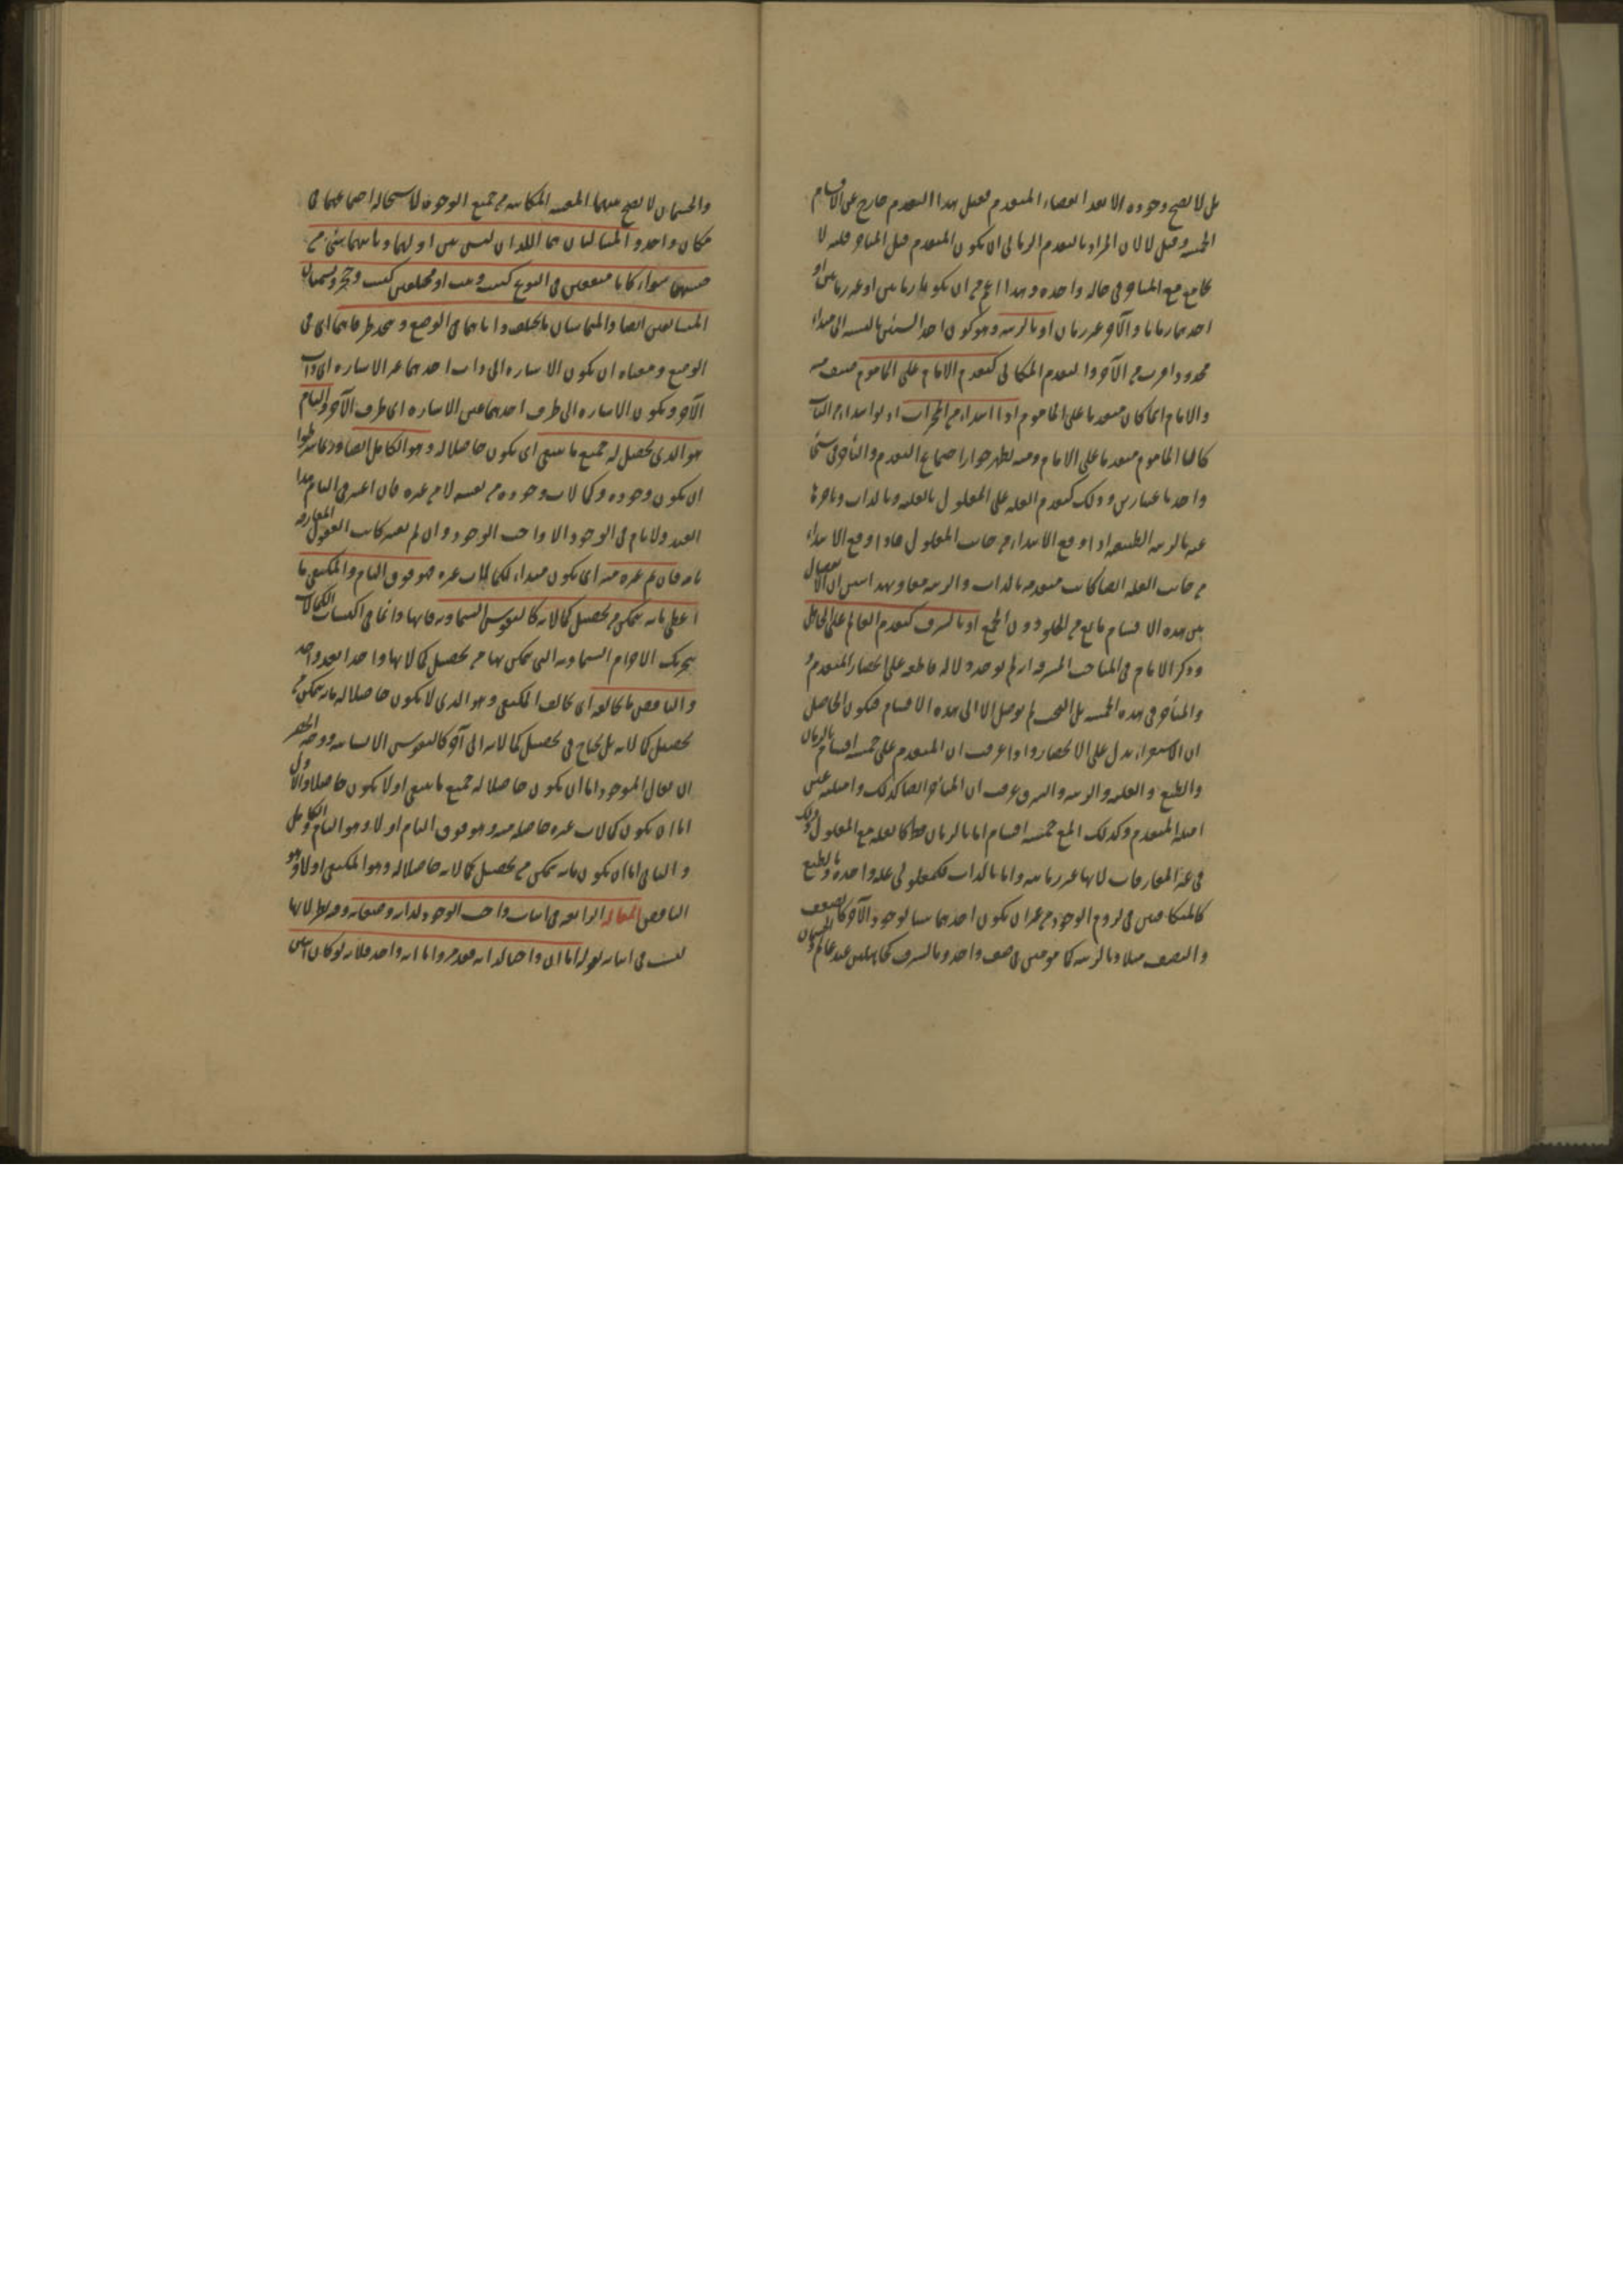 بل لا يصح وجوده الا بعد انقضاء المتقدم فقيل هذا التقدم خارج عن الاقسام
الخمسة وقيل لا لان المراد بالتقدم الزماني ان يكون المتقدم قبل المتاخر قبلية لا
يجامع مع المتاخر في حالة واحدة وهذا اعم من ان يكونا زمانيين او غير زمانيين او
احدهما زمانا والآخر غير زمان او بالرتبة وهو كون احد الشيئين بالنسبة الى مبداء
محدود اقرب من الآخر والتقدم المكاني كتقدم الامام على الماموم
والامام انما كان متقدما على الماموم اذا ابتداء من المحراب اذ لو ابتداء من الباب
كان الماموم متقدما على الامام ومنه يظهر جواز اجتماع التقدم والتأخر في شئ
واحد باعتبارين وذلك كتقدم العلة على المعلول بالعلية وبالذات وتاخرها
عنه بالرتبة الطبيعية اذا وقع الابتداء من جانب المعلول فاذا وقع الابتداء
من جانب العلة ايضا كانت متقدمة بالذات والرتبة معا وبهذا تبين ان الانفصال
بين هذه الاقسام مانع من الخلو دون الجمع او بالشرف كتقدم العالم على الجاهل
وذكر الامام في المباحث المشرقية انه لم يوجد دلالة قاطعة على انحصار المتقدم و
والمتأخر في هذه الخمسة بل البحث لم يوصل الا الى هذه الاقسام فيكون الحاصل
ان الاستقراء يدل على الانحصار واذا عرفت ان المتقدم على خمسة اقسام بالزمان
والطبع والعلية والرتبة والشرف عرفت ان المتأخر ايضا كذلك وامثلته عين
امثلة المتقدم وكذلك المع خمسة اقسام اما بالزمان فقط كالعلة مع المعلول وذلك
في غير المفارقات لانها غير زمانية واما بالذات فكمعلولي علة واحدة وبالطبع
كالمتكافيين في لزوم الوجود من غير ان يكون احدهما سببا لوجود الآخر كالضعف
والنصف مثلا وبالرتبة كمامومين في صف واحد وبالشرف كجاهلين عند عالم والجسمان
والجسمان لا يصح بينهما المعية المكانية من جميع الوجوه لاستحالة اجتماعهما في
مكان واحد و المتتاليان هما اللذان ليس بين اوليهما وثانيهما شئ من
جنسهما سواء كانا متفقين في النوع كبيت وبيت او مختلفين كبيت وحجر ويسميان
المتشافعين ايضا والمتماسان ما يختلف ذاتاهما في الوضع ويتحد طرفاهما اى في
الوضع ومعناه ان يكون الاشارة الى ذات احدهما غير الاشارة الى ذات
الآخر ويكون الاشارة الى طرف احدهما عين الاشارة الى طرف الآخر والتام
هو الذى يحصل له جميع ما ينبغى اى يكون حاصلا له وهو الكامل ايضا وربما شرطوا
ان يكون وجوده وكمالات وجوده من نفسه لا من غيره فان اعتبر في التام هذا
القيد ولا تام في الوجود الا واجب الوجود وان لم يعتبر كانت العقول المفارقة
تامة فان تم غيره منه اى يكون مبداء لكمالات غيره فهو فوق التام والمكتفى ما
اعطى ما به يتمكن من تحصيل كمالاته كالنفوس السماوية فانها دائما في اكتساب الكمالات
بتحريك الاجرام السماوية التى يتمكن بها من تحصيل كمالاتها واحدا بعد واحد
والناقص ما يخالفه اى يخالف المكتفى وهو الذى لا يكون حاصلا له ما به يتمكن من
تحصيل كمالاته بل يحتاج في تحصيل كمالاته الى آخر كالنفوس الانسانية ووجه الحصر
ان يقال الموجود اما ان يكون حاصلا له جميع ما ينبغى او لا يكون حاصلا والاول
اما ان يكون كمالات غيره حاصلة منه وهو فوق التام او لا وهو التام والكامل
و الثانى اما ان يكون ما به يتمكن من تحصيل كمالاته حاصلا له وهو المكتفى او لا وهو
الناقص المقالة الرابعة في اثبات واجب الوجود لذاته وصفاته وفيه نظر لانها
ليست في اثباته لقوله اما ان واجبا لذاته فقد مر واما انه واحد فلانه لو كان اثنين